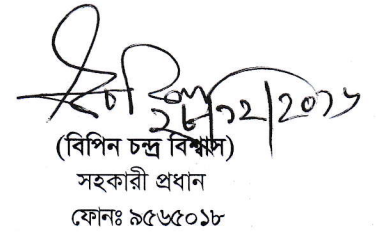 ২৮/১২/২০১৬
(বিপিন চন্দ্র বিশ্বাস)
সহকারী প্রধান
ফোনঃ ৯৫৬৫০১৮